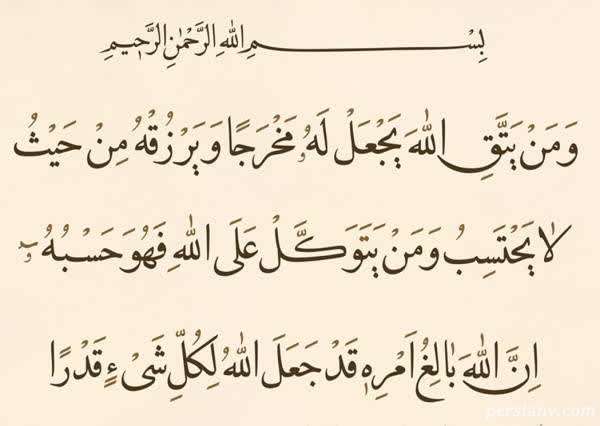 بِسْمِ اللهِ الرَّحْمٰنِ الرَّحِیمِ
وَمَنْ یَتَّقِ اللهَ یَجْعَلْ لَهُ مَخْرَجًا وَ یَرْزُقْهُ مِنْ حَیْثُ
لٰا یَحْتَسِبُ وَمَنْ یَتَوَکَّلْ عَلَی اللهِ فَهُوَ حَسْبُهُ
اِنَّ اللهَ بٰالِغُ اَمْرِهِ قَدْ جَعَلَ اللهُ لِکُلِّ شَیْءٍ قَدْرًا
persianv.com